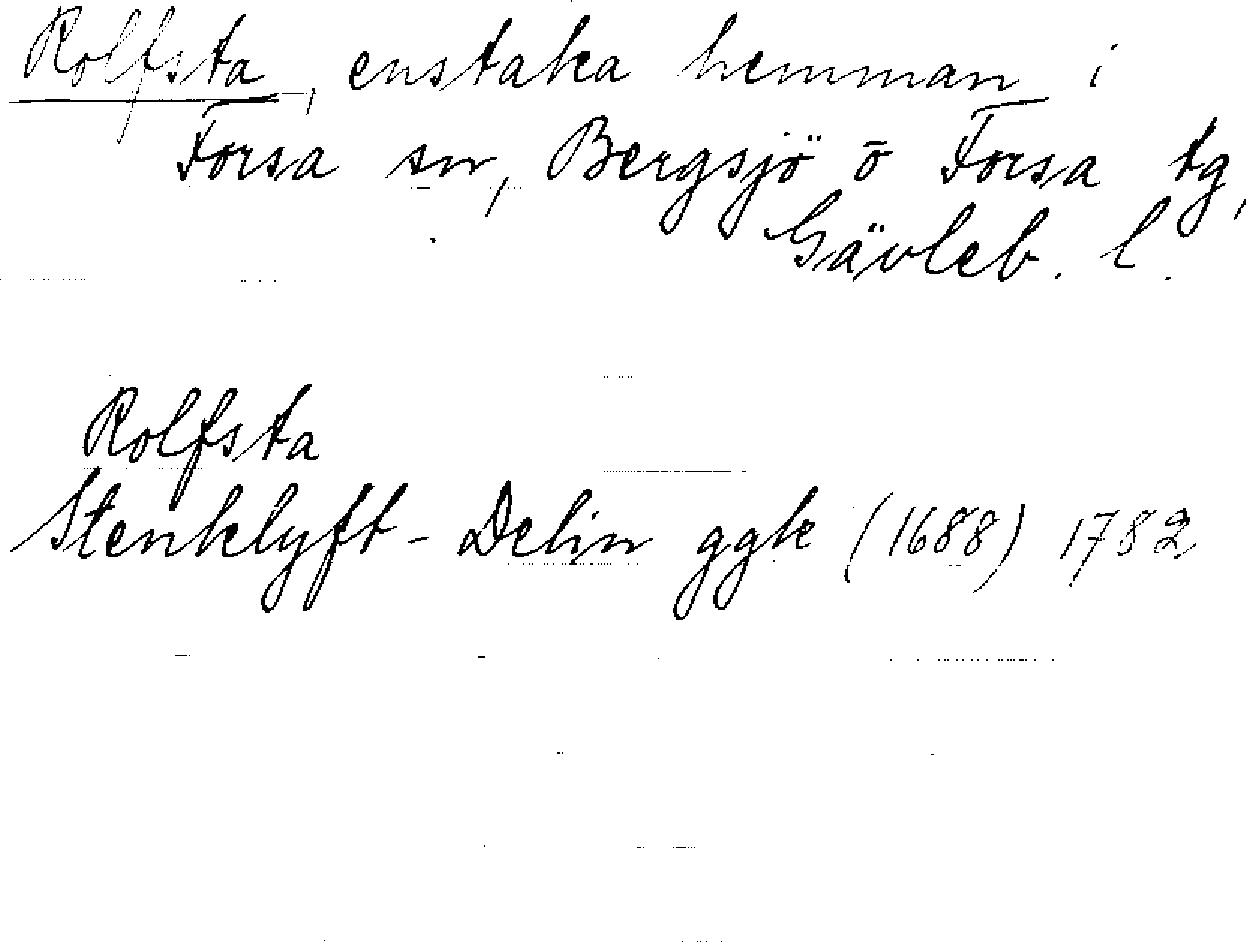 Rolfsta, enstaka hemman i
Forsa sn, Bergsjö o Forsa tg,
Gävleb. l.
Rolfsta
Stenklyft-Delin ggk (1688) 1782